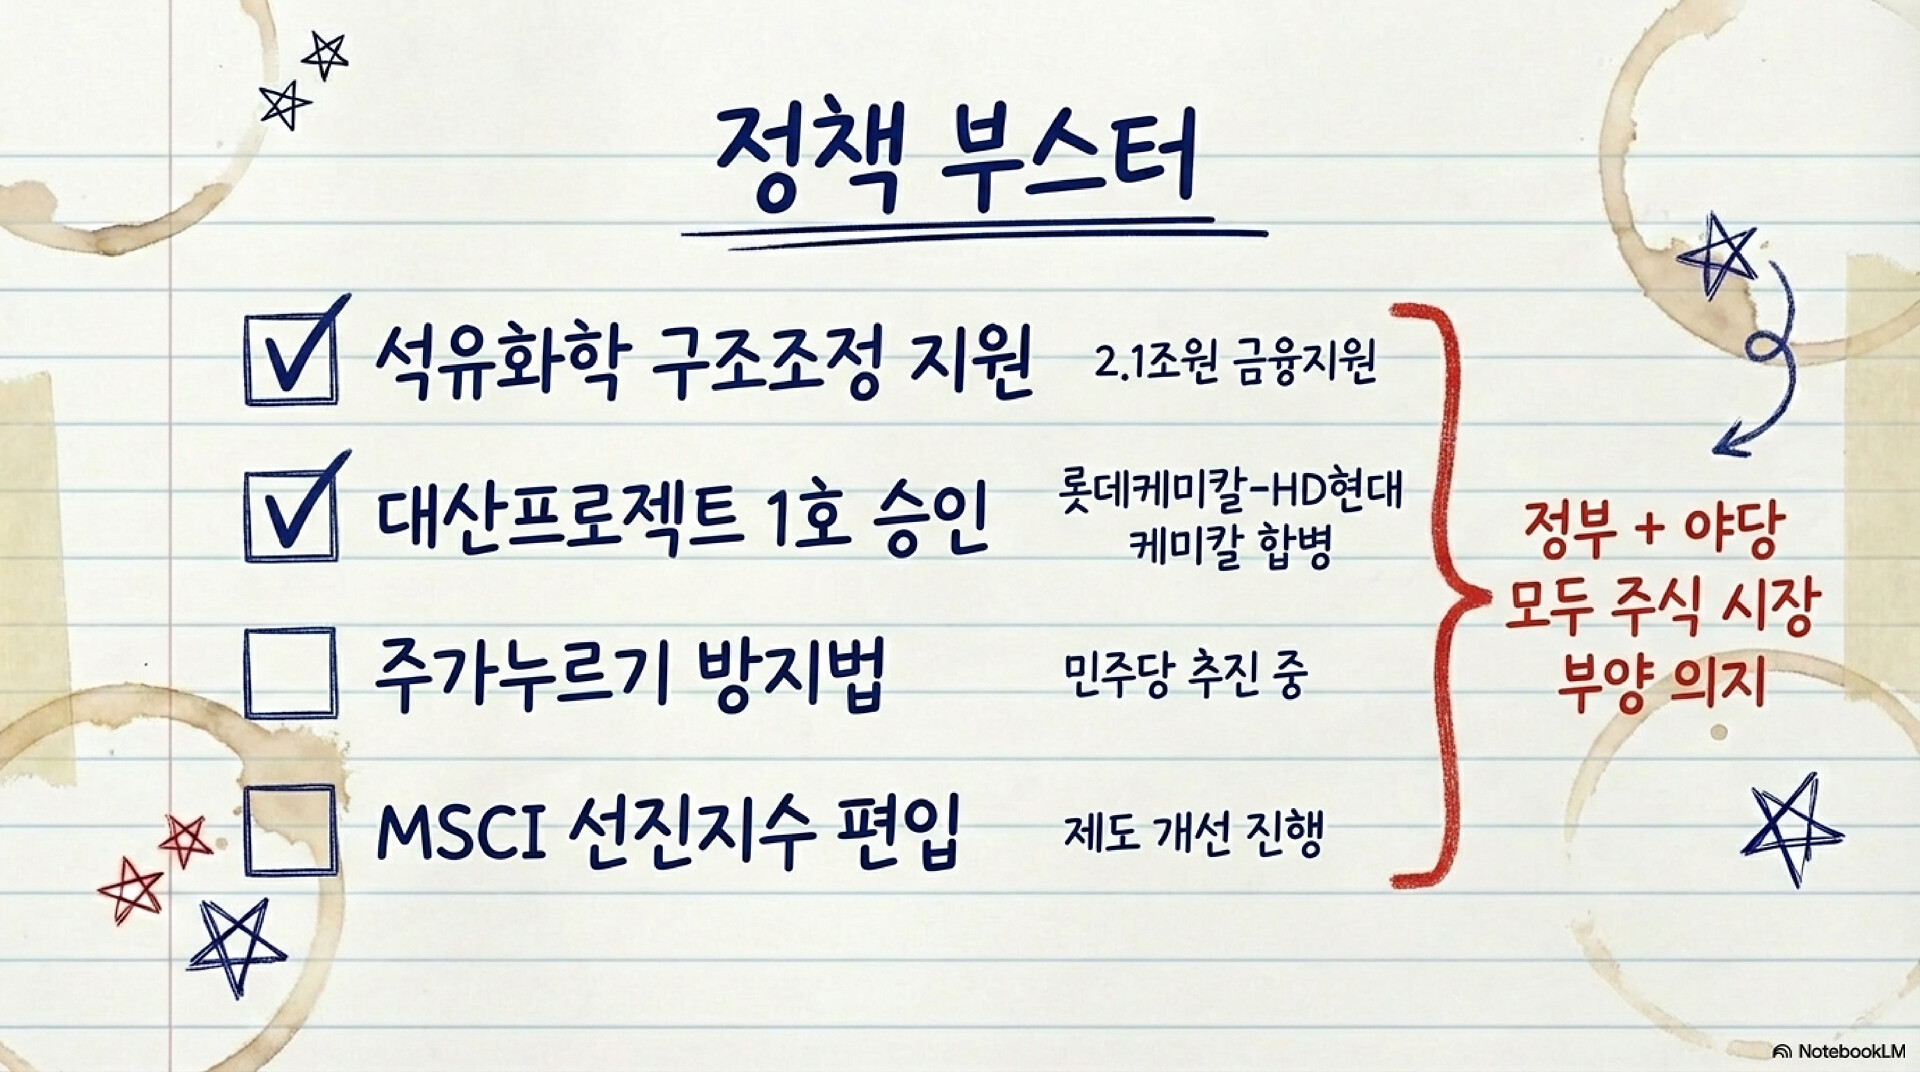 정책 부스터
석유화학 구조조정 지원 2.1조원 금융지원
대산프로젝트 1호 승인 롯데케미칼-HD현대
케미칼 합병
주가누르기 방지법 민주당 추진 중
MSCI 선진지수 편입 제도 개선 진행
정부 + 야당
모두 주식 시장
부양 의지
NotebookLM